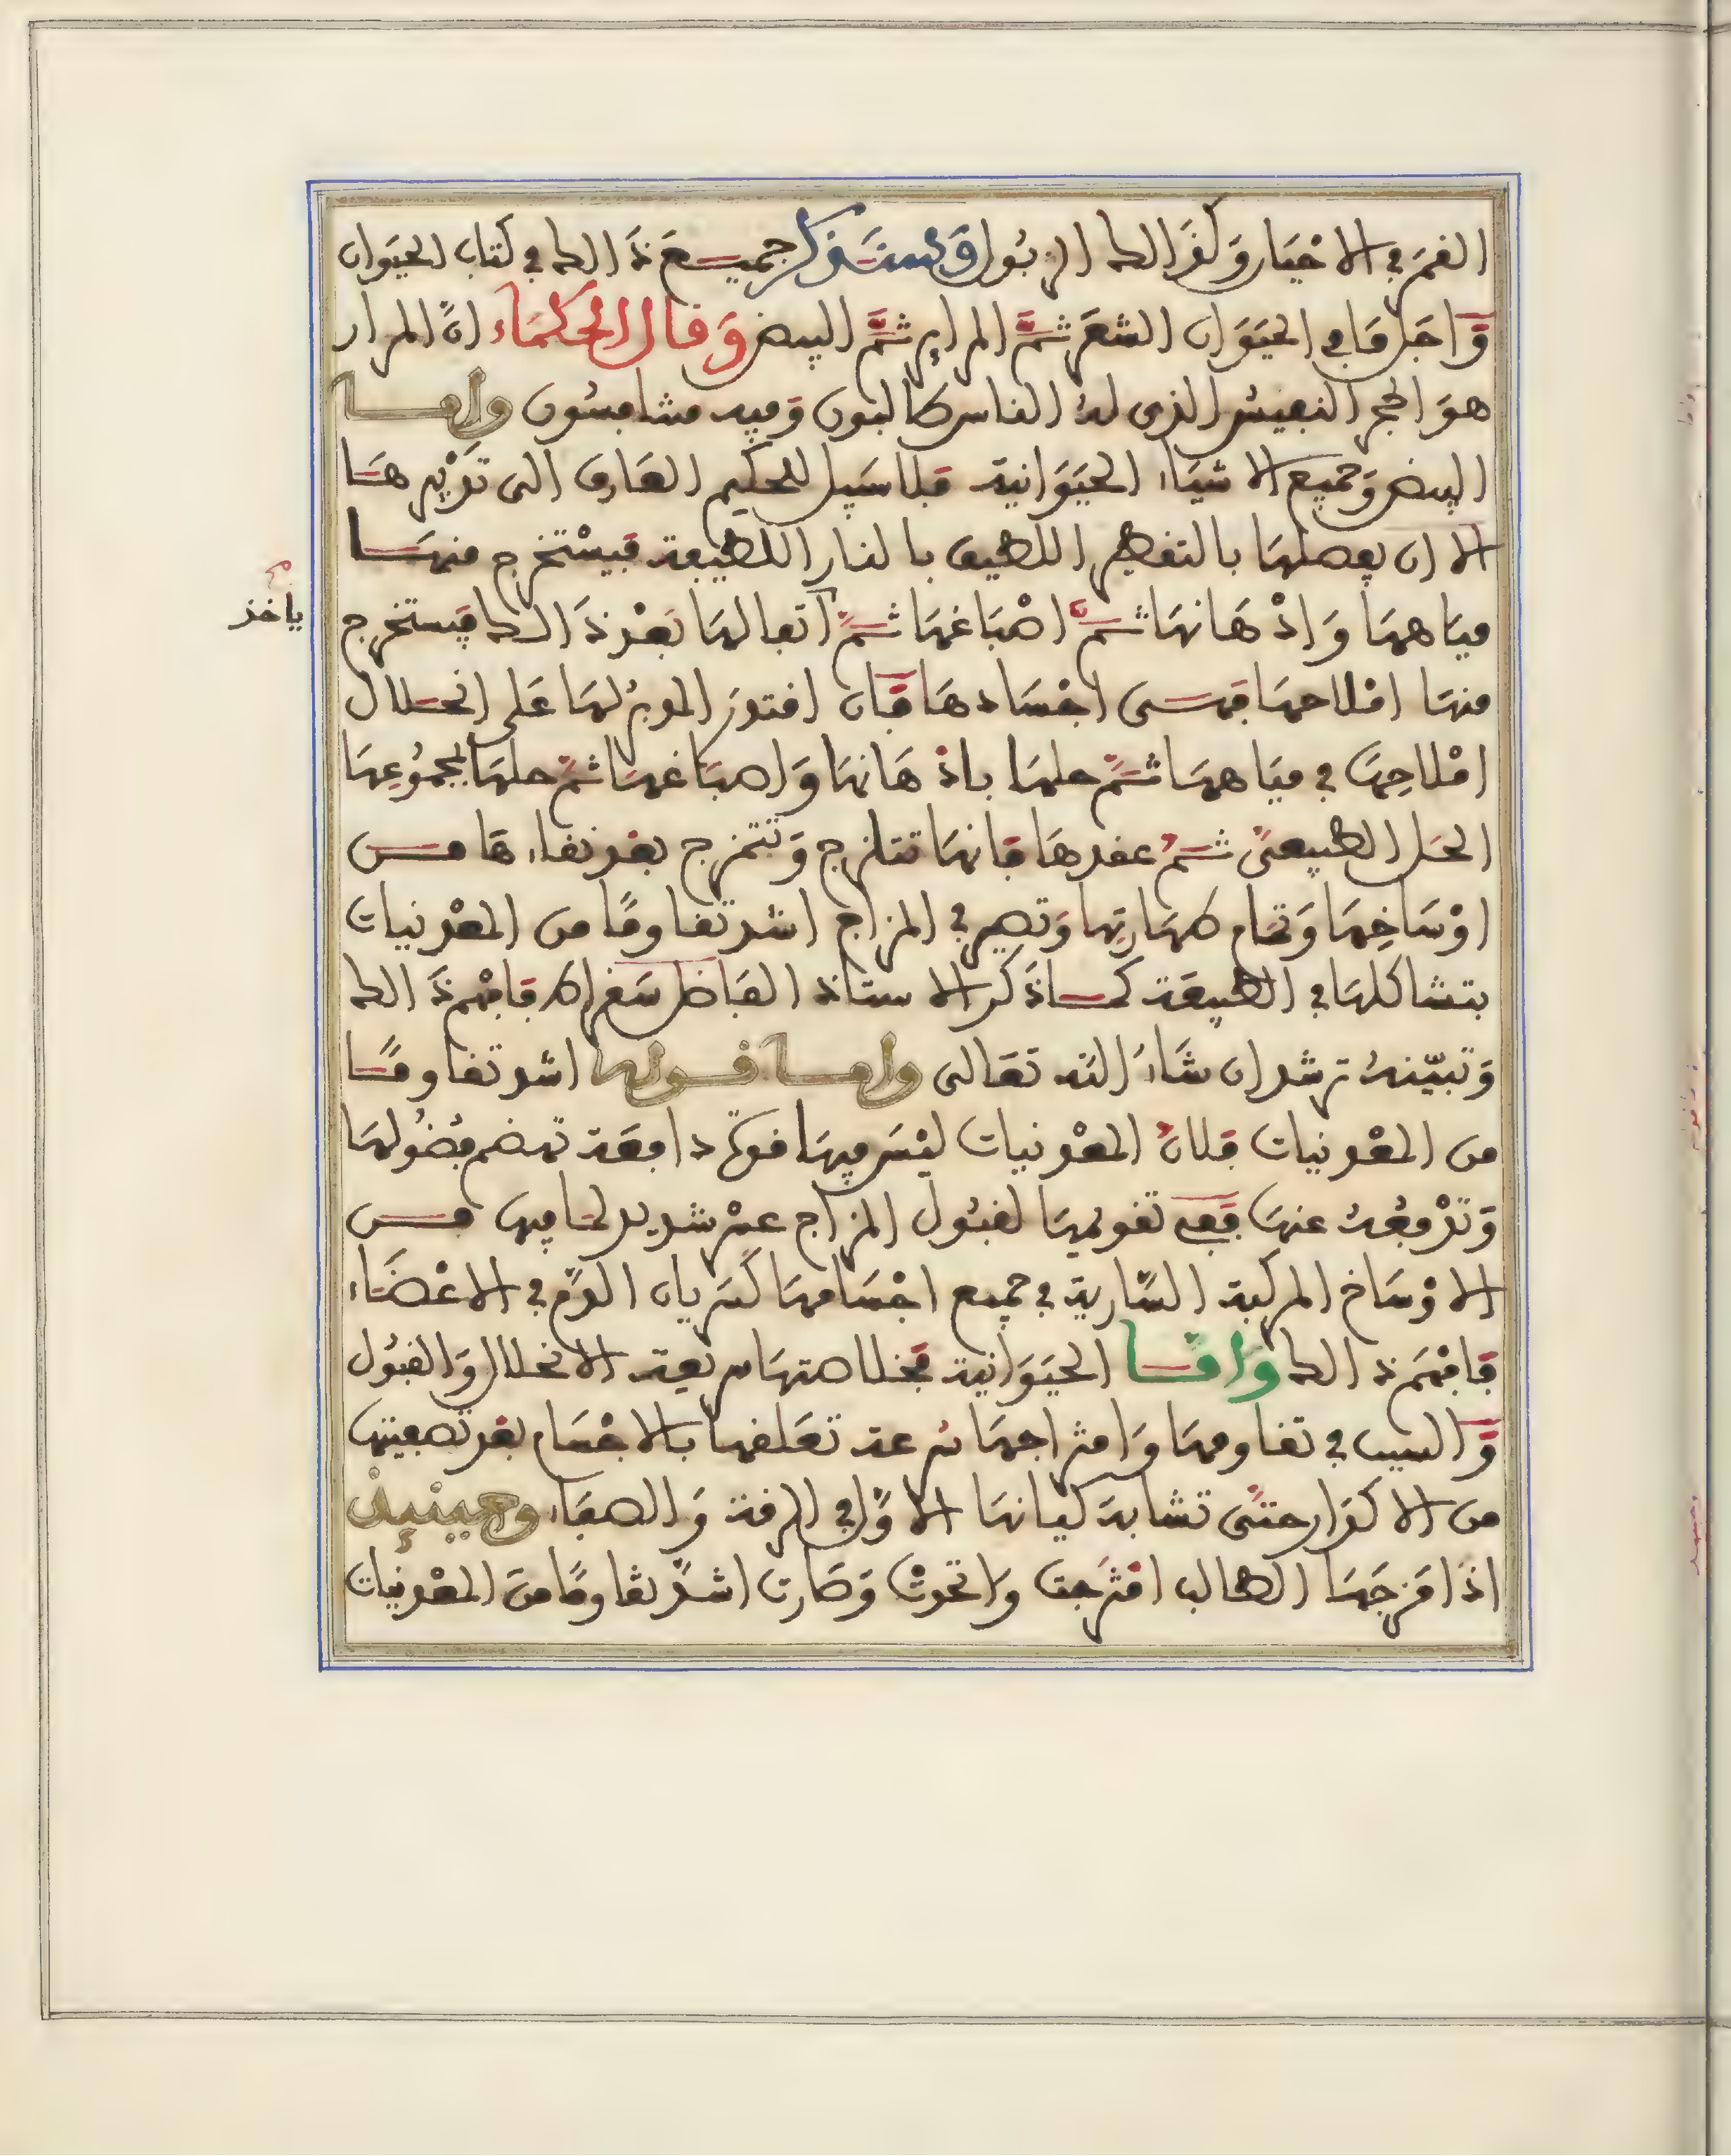 القمر في الاخيار وكذالك البول وسنذكر جميع ذالك في كتاب الحيوان
واجل ما في الحيوان الشعر ثم المراير ثم البيض وقال الحكماء ان المرار
هو الحجر النفيس الذى له الناس طالبون وفيه منافسون واما
البيض وجميع الاشياء الحيوانية فلا سبيل للحكيم العارف الى تدبيرها
الا ان يفصلها بالتقطير اللطيف بالنار اللطيفة فيستخرج منها
مياهها وادهانها ثم اصباغها ثم اثفالها بعد ذالك فيستخرج
ياخذ
منها املاحها فهى اجسادها فان اقتدر المدبر لها على انحلال
املاحها في مياهها ثم حلها بادهانها واصباغها ثم حلها لمجموعها
الحل الطبيعى ثم عقدها فانها تتلزج وتتمزج بعد نقاءها من
اوساخها وتمام طهارتها وتصير في المزاج اشد تقاوما من المعدنيات
بتشاكلها في الطبيعة كما ذكر الاستاذ الفاضل سقراط فافهم ذالك
وتبينه ترشد ان شاء الله تعالى واما قوله اشد تقاوما
من المعدنيات فلان المعدنيات ليس فيها قوة دافعة تهضم فضولها
وتدفعه عنها ففى تقويمها لقبول المزاج عسر شديد لما فيها من
الاوساخ المركبة السارية في جميع اجسامها كسريان الدم في الاعضاء
فافهم ذالك واما الحيوانية فخلاصتها سريعة الانحلال والقبول
والسبب في تقاومها وامتزاجها سرعة تعلقها بالاجسام بعد تصفيتها
من الاكدار حتى تشابه كيانها الاول في الرقة والصفاء وحينئذ
اذا مزجها الطالب امتزجت واتحدت وصارت اشد تقاوما من المعدنيات